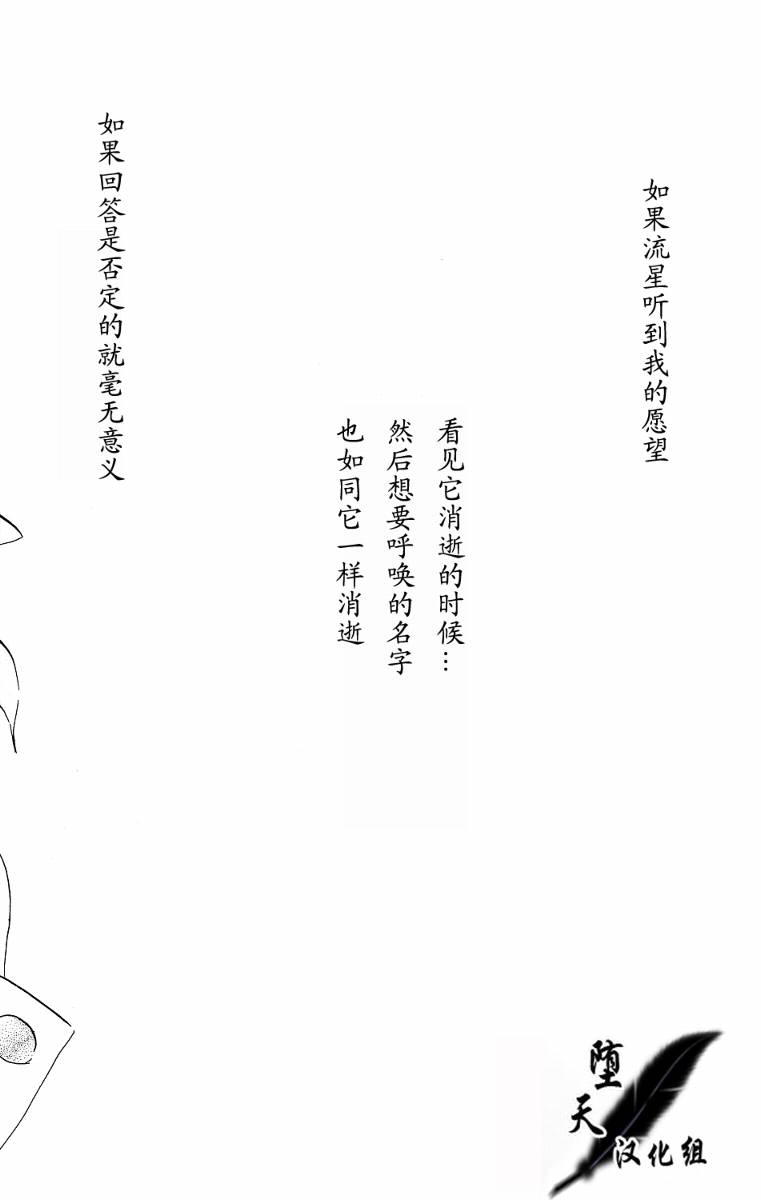 如果流星听到我的愿望
看见它消逝的时候…
然后想要呼唤的名字
也如同它一样消逝
如果回答是否定的就毫无意义
堕天
汉化组